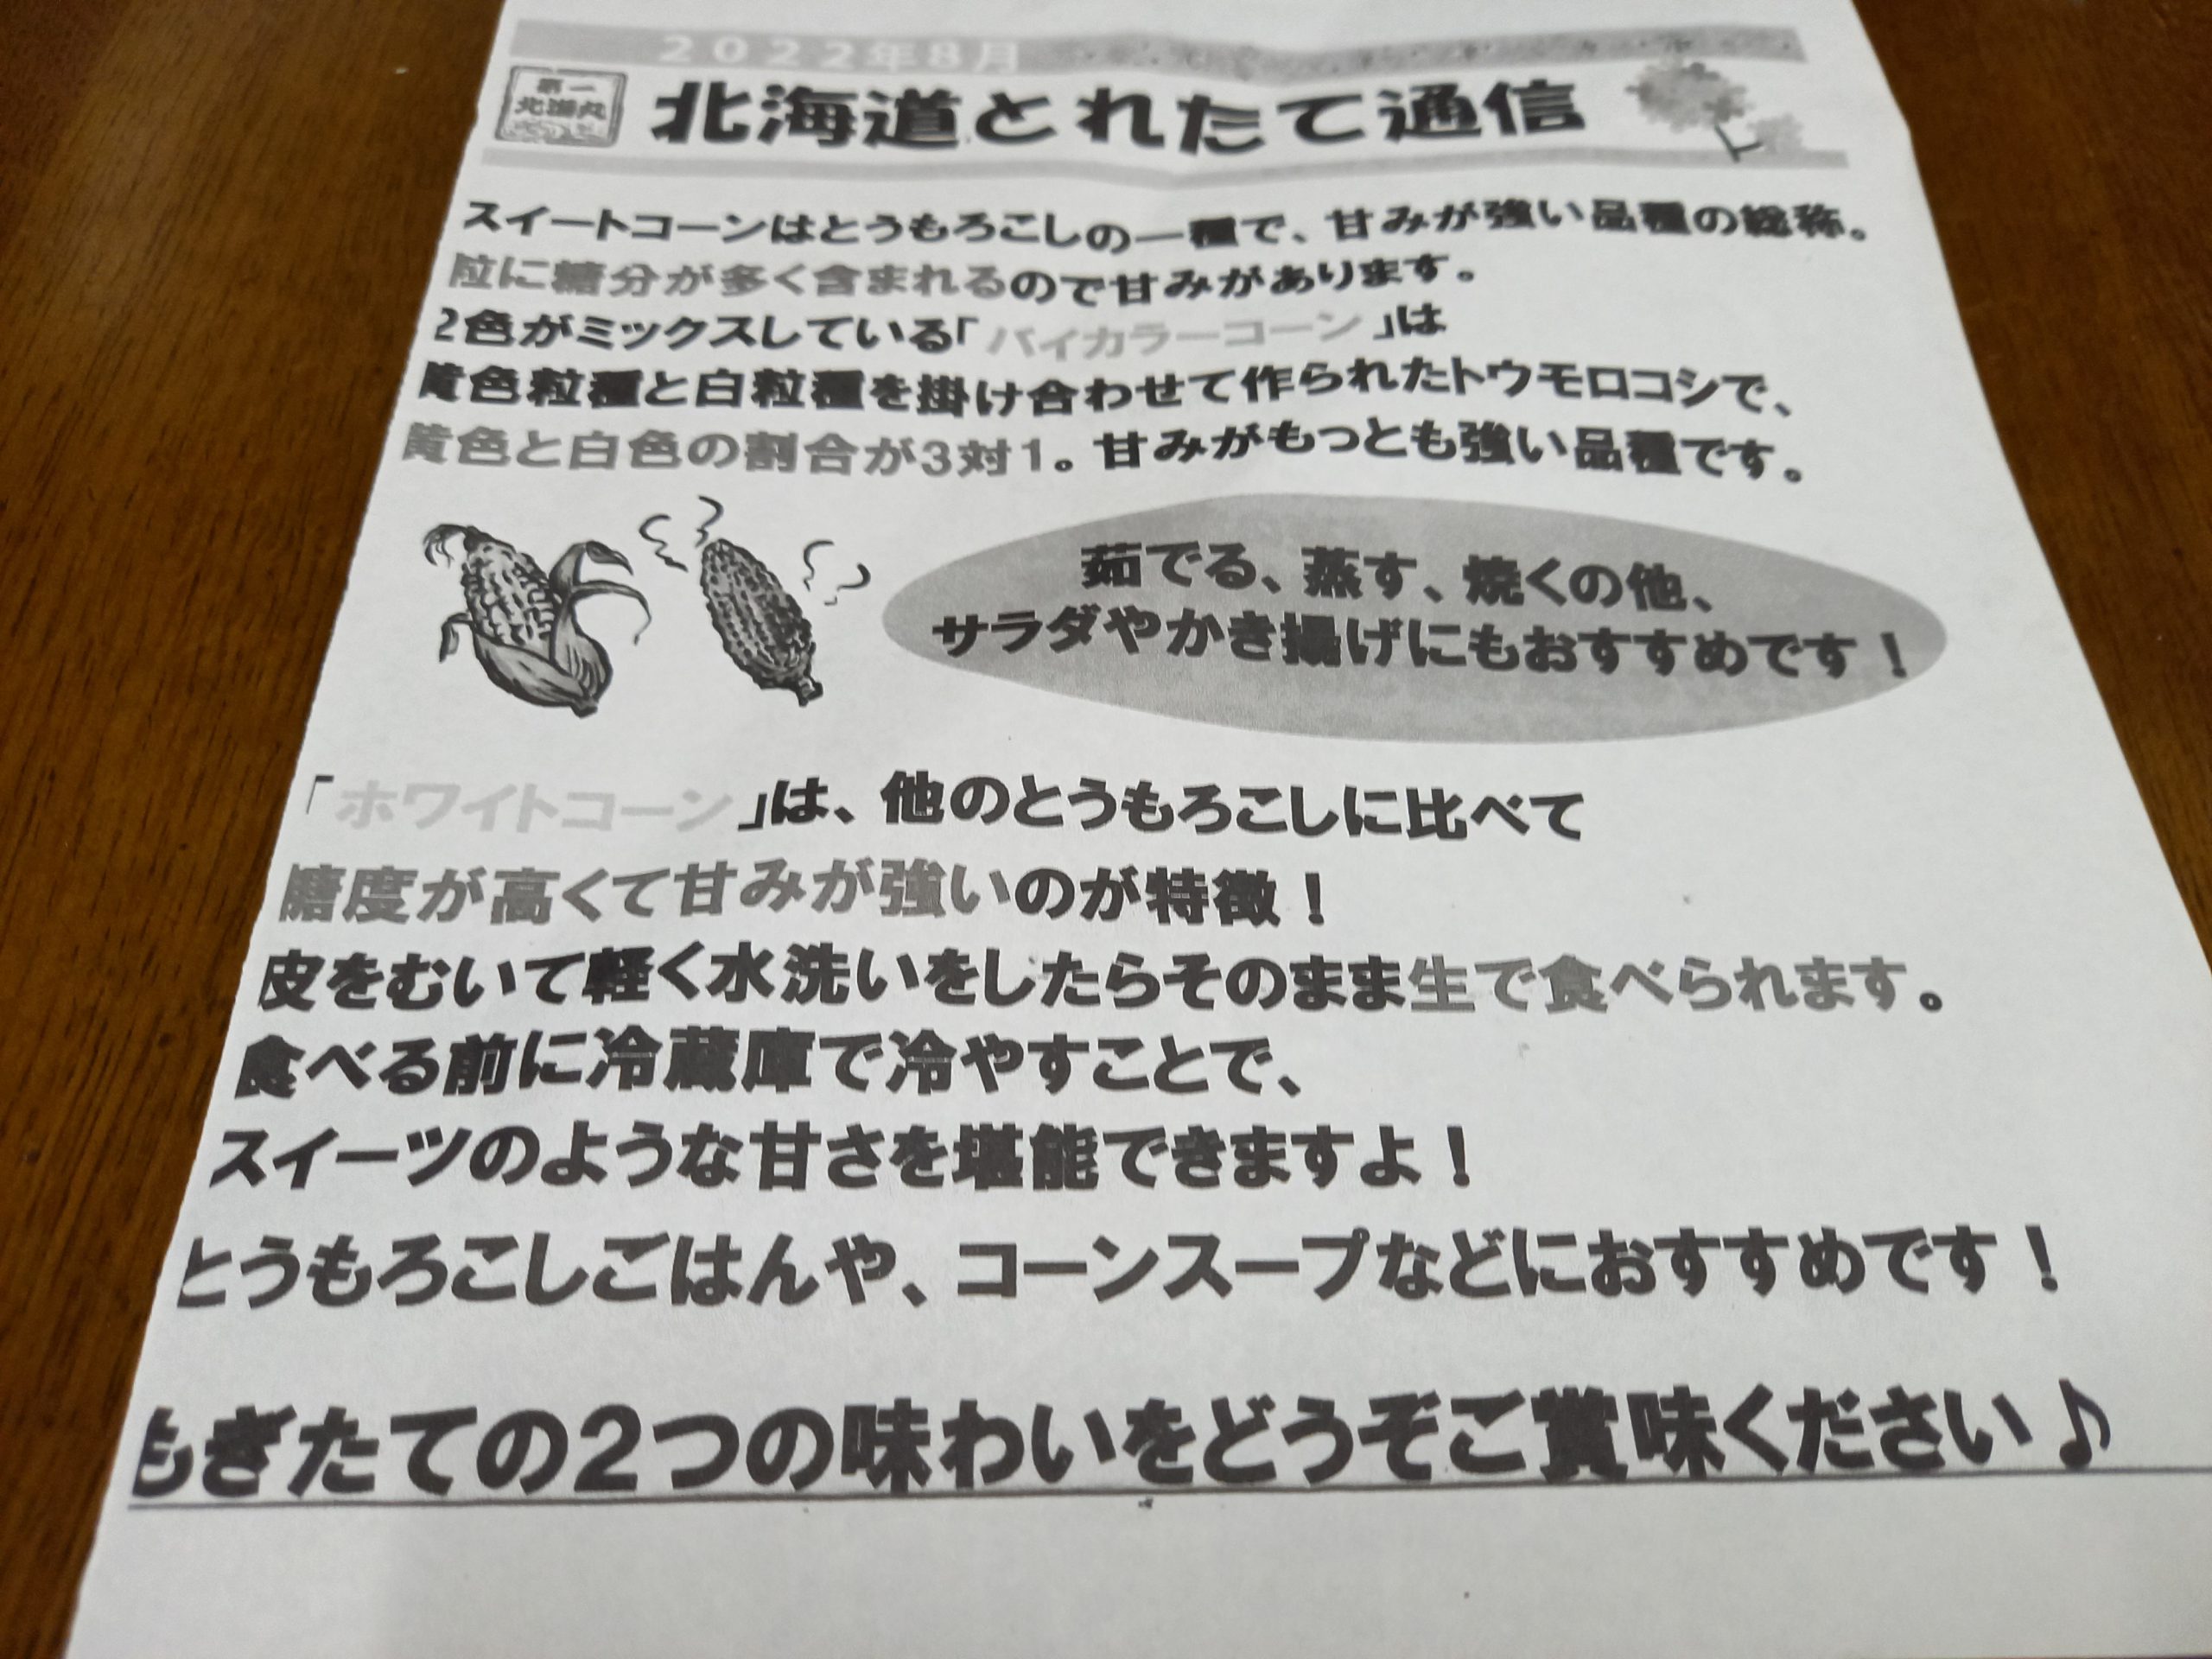 2022年8月
第一
北海丸
北海道とれたて通信
スイートコーンはとうもろこしの一種で、甘みが強い品種の総称。
粒に糖分が多く含まれるので甘みがあります。
2色がミックスしている「バイカラーコーン」は
黄色粒種と白粒種を掛け合わせて作られたトウモロコシで、
黄色と白色の割合が3対1。甘みがもっとも強い品種です。
茹でる、蒸す、焼くの他、
サラダやかき揚げにもおすすめです！
「ホワイトコーン」は、他のとうもろこしに比べて
糖度が高くて甘みが強いのが特徴！
皮をむいて軽く水洗いをしたらそのまま生で食べられます。
食べる前に冷蔵庫で冷やすことで、
スイーツのような甘さを堪能できますよ！
とうもろこしごはんや、コーンスープなどにおすすめです！
もぎたての2つの味わいをどうぞご賞味ください♪